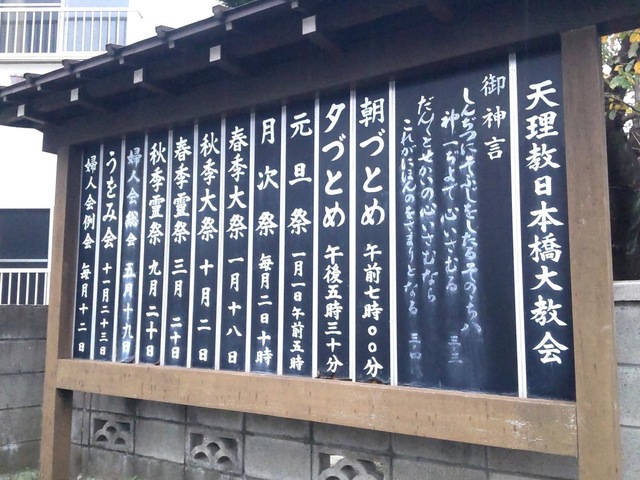 天理教日本橋大教会
御神言
しんぢつにそふぢをしたるそのゝちハ
神一ぢよで心いさむる 三 三
だん〱とせかいの心いさむなら
これがにほんのをさまりとなる 三 四
朝づとめ 午前七時〇〇分
夕づとめ 午後五時三十分
元旦祭 一月一日午前五時
月次祭 毎月二日十時
春季大祭 一月十八日
秋季大祭 十月二日
春季霊祭 三月二十日
秋季霊祭 九月二十日
婦人会総会 五月十九日
うをみ会 十一月二十三日
婦人会例会 毎月十二日